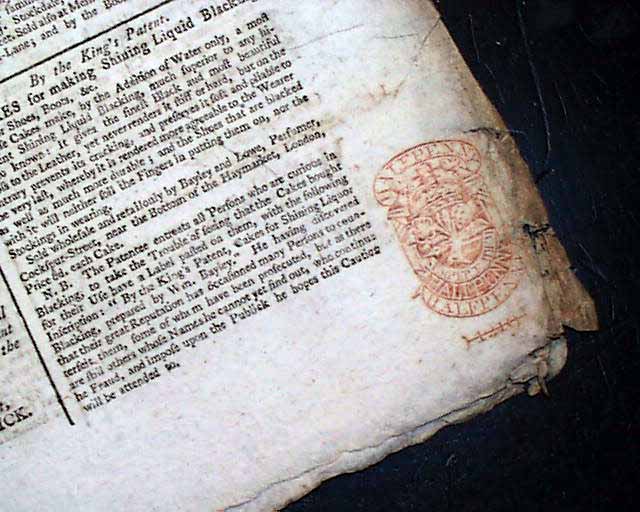 Sold also at
-Lane; and by the
By the King's Patent.
ES for making Shining Liquid Blacking
for Shoes, Boots, &c.
Cakes make, by the Addition of Water only, a most
Shining Liquid Blacking, much superior to any hi-
known. It gives the finest Black and most beautiful
to the Leather, yet never renders it stiff or hard, but on the
prevents its cracking, and preserves it soft and pliable to
the very last, whereby it is rendered more agreeable to the Wearer
as well as much more durable; and the Shoes that are blacked
it, will neither soil the Fingers in putting them on, nor the
Stockings in wearing.
Sold wholesale and retail only by Bayley and Lowe, Perfumer,
Cockspur-Street, near the Bottom of the Haymarket, London,
Price 6d. each Cake.
N. B. The Patentee entreats all Persons who are curious in
Blacking, to take the Trouble of seeing that the Cakes bought
for their Use have a Label pasted on them, with the following
Inscription: "By the King's Patent, Cakes for Shining Liquid
Blacking, prepared by Wm. Bayley." He having discovered
that their great Reputation has occasioned many Persons to coun-
terfeit them, some of whom have been prosecuted, but as there
are still others whose Names he cannot yet find out, who continue
the Fraud, and impose upon the Publick he hopes this Caution
will be attended to.
the
ICK.
HALFPENNY
HALFPENNY